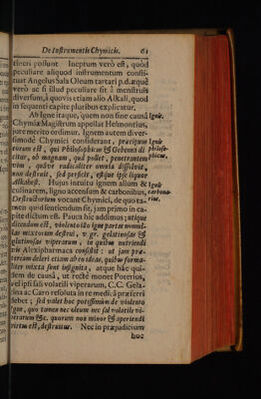 De Instrumentis Chymicis. 61
effieri possunt. Ineptum verò est, quòd
peculiare aliquod instrumentum consti-
tuat Angelus Sala Oleum tartari p.d. æquè
verò ac si illud peculiare sit à menstruis
diversum, à quovis etiam alio Alkali, quod
in sequenti capite pluribus explicatur.
Ab Igne itaque, quem non sine causâ Ignis.
Chymiæ Magistrum appellat Helmontius,
jure merito ordimur. Ignem autem diver-
simodè Chymici considerant, præcipuus
eorum est, qui Philosophicus & Gehennæ di- Ignis
citur, ob magnam, quâ pollet, penetrantem Philoso-
vim, quâve radicaliter omnia dissolvit, phicus.
non destruit, sed perficit, estque ipse liquor
Alkahest. Hujus intuitu ignem alium & Ignis
culinarem, ligno accensum & carbonibus, carbona-
Destructorium vocant Chymici, de quo ta- rius.
men quid sentiendum sit, jam primo in ca-
pite dictum est. Pauca hic addimus; utique
dicendum est, violento isto igne partes nonnul-
las mixtorum destrui, v. gr. gelatinosas &
glutinosas viperarum, in quibus nutriendi
vis Alexipharmaca consistit: ut jam præ-
tereàm deleri etiam ab eo ideas, quibus forma-
liter mixta sunt insignita, atque hâc qui-
dem de causâ, ut rectè monet Poterius,
vel ipsi sali volatili viperarum, C.C. Gela-
tina ac Caro resoluta in re medicâ præferri
debet; sed valet hoc potissimùm de violento
igne, quo tamen nec oleum nec sal volatile vi-
perarum &c. quorum non minor & aperiendi
virtus est, destruitur. Nec in præjudicium
hoc